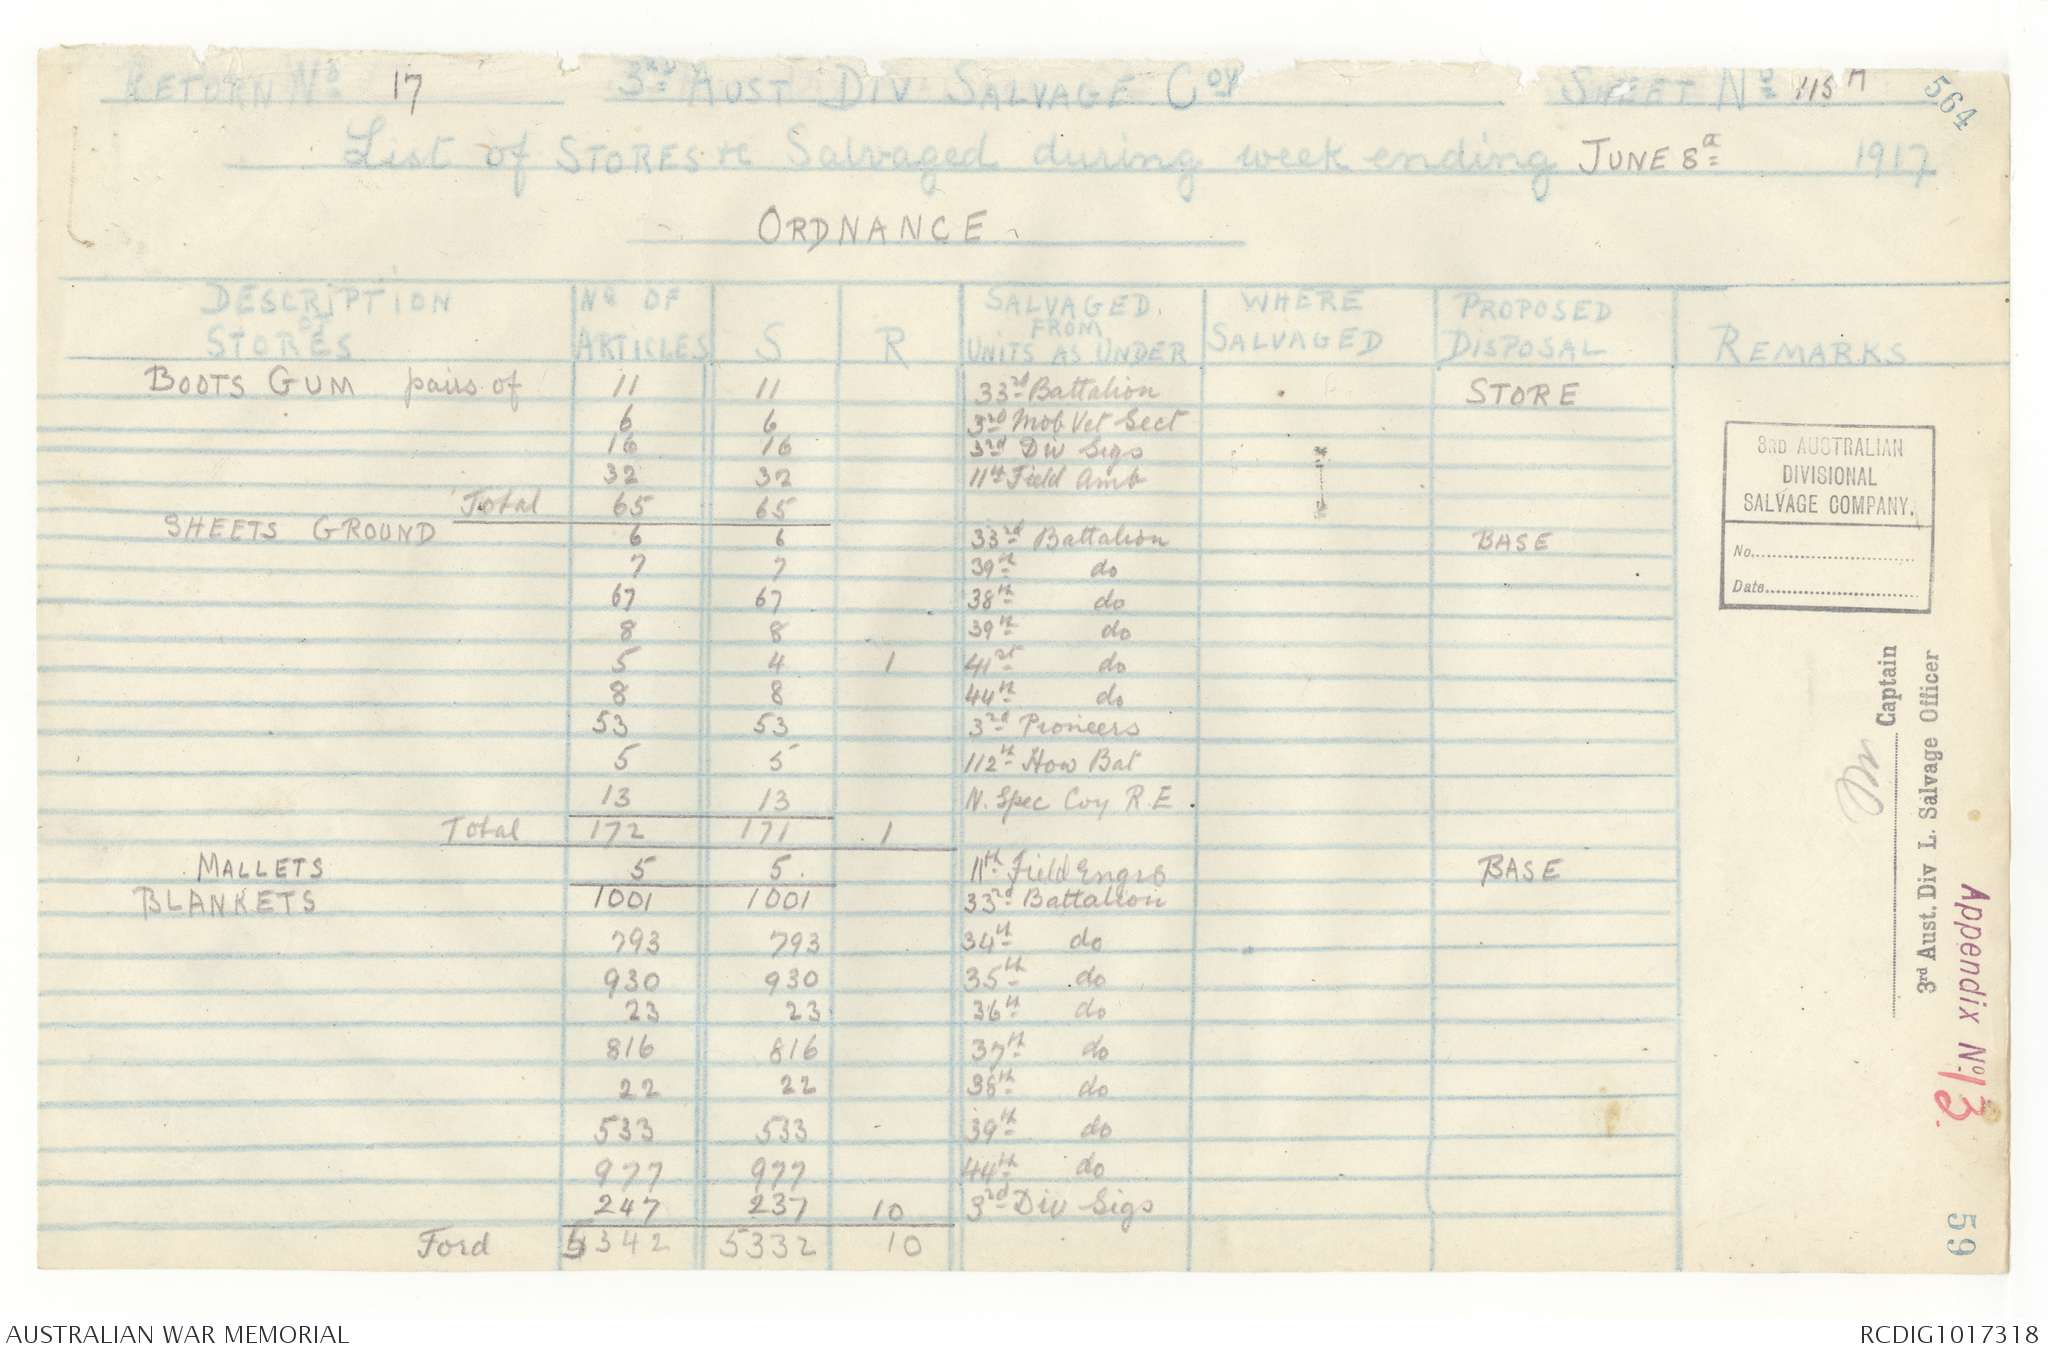 RETURN No 17 3RD AUST DIV SALVAGE Coy SHEET No 115A 564
List of STORES &c Salvaged during week ending JUNE 8th 1917
ORDNANCE
DESCRIPTION OF STORES No OF ARTICLES S R SALVAGED FROM UNITS AS UNDER WHERE SALVAGED PROPOSED DISPOSAL REMARKS
BOOTS GUM pairs of 11 11 33rd Battalion STORE
6 6 3rd Mob Vet Sect
16 16 3rd Div Sigs
32 32 11th Field Amb
Total 65 65
SHEETS GROUND 6 6 33rd Battalion BASE
7 7 39th do
67 67 38th do
8 8 39th do
5 4 1 41st do
8 8 44th do
53 53 3rd Pioneers
5 5 112th How Bat
13 13 N. Spec Coy R.E.
Total 172 171 1
MALLETS 5 5 11th Field Engrs BASE
BLANKETS 1001 1001 33rd Battalion
793 793 34th do
930 930 35th do
23 23 36th do
816 816 37th do
22 22 38th do
533 533 39th do
977 977 44th do
247 237 10 3rd Div Sigs
Ford 5342 5332 10
3RD AUSTRALIAN
DIVISIONAL
SALVAGE COMPANY.
No.
Date
Captain
3rd Aust. Div L. Salvage Officer
Appendix No. 13.
59
AUSTRALIAN WAR MEMORIAL
RCDIG1017318